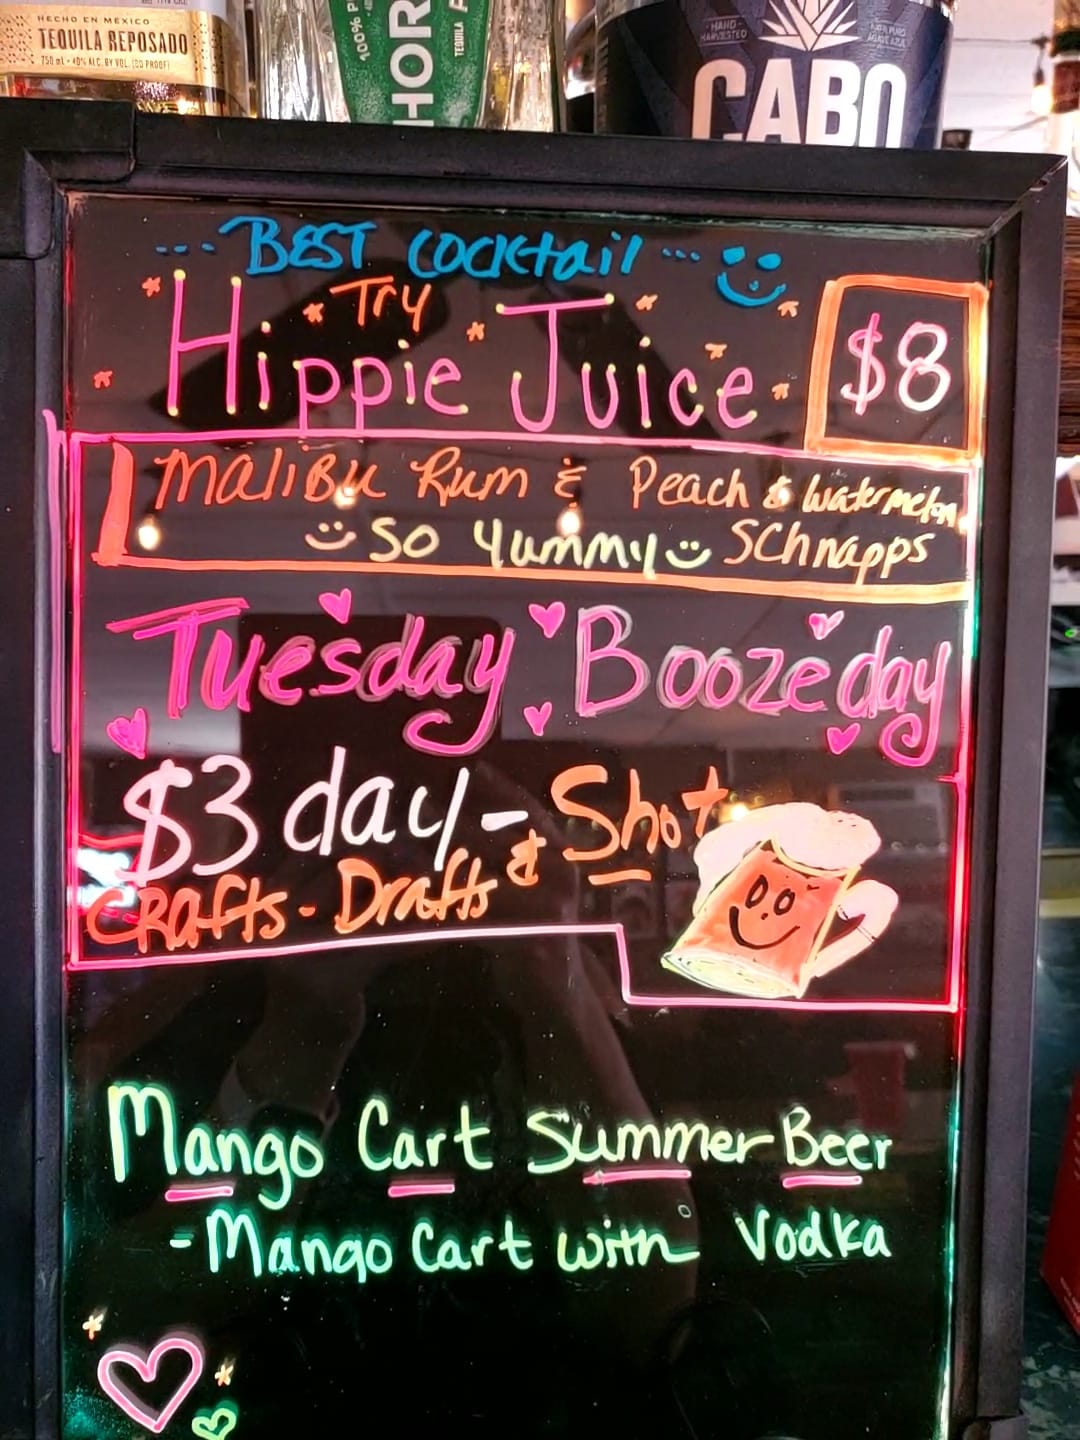 HECHO EN MÉXICO
TEQUILA REPOSADO
750 ml - 40% ALC. BY VOL. (80 PROOF)
100%
HOR
TEQUILA
HAND-HARVESTED
CABO
... BEST COCKTAIL ...
TRY
Hippie Juice
$8
MALIBU Rum & Peach & Watermelon
So Yummy SCHnapps
Tuesday Boozeday
$3 day - & Shot
CRAfts - Drafts
Mango Cart Summer Beer
- Mango Cart with Vodka